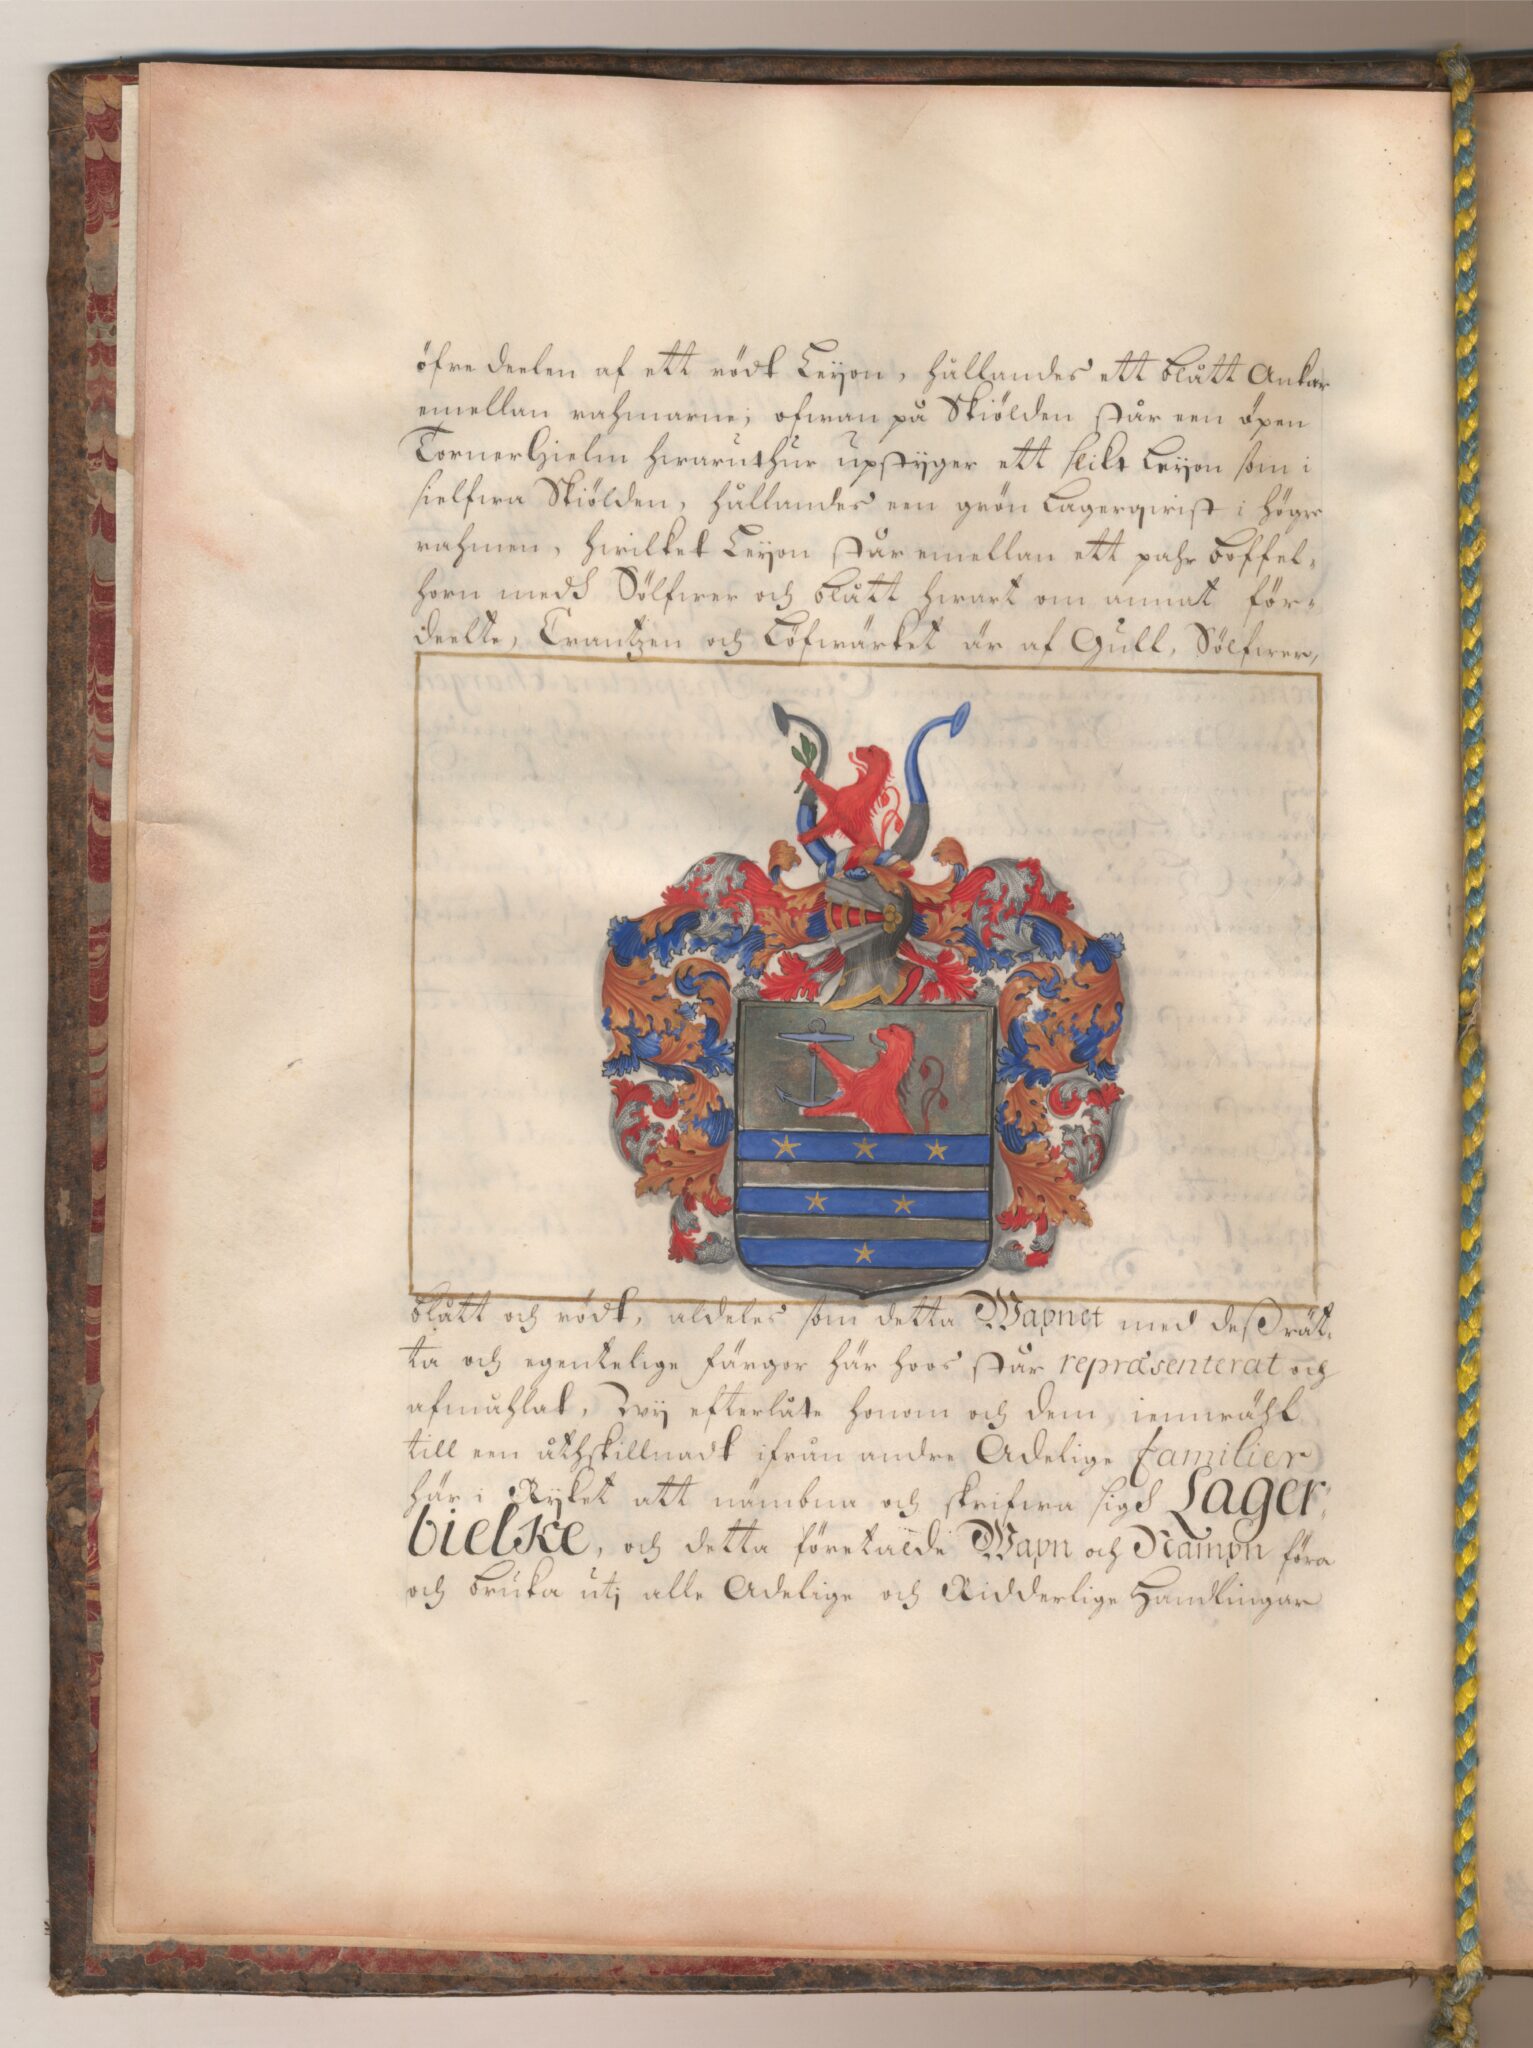 öfre deelen af ett rödt Leijon, hållandes ett blått Ankar
emellan rahmarne; ofwan på Skiölden står een öpen
Tornerhielm hwaruthur upstijger ett slikt Leijon som i
sielfwa Skiölden, hållandes een grön Lagerqwist i högre
rahmen, hwilket Leijon står emellan ett pahr boffel-
horn medh Sölfwer och blått hwart om annat för-
deelte, Crantzen och Löfwärket är af Gull, Sölfwer,
blått och rödt, aldeles som detta Wapnet med dess rät-
ta och egentelige färgor här hoos står repræsenterat och
afmåhlat, Wij efterlåte honom och dem, iemwähl
till een åthskillnadt ifrån andre Adelige familier
här i Rijket att nämbna och skrifwa sigh Lager-
bielke, och detta företalde Wapn och Nampn föra
och bruka utj alle Adelige och Ridderlige Handlingar